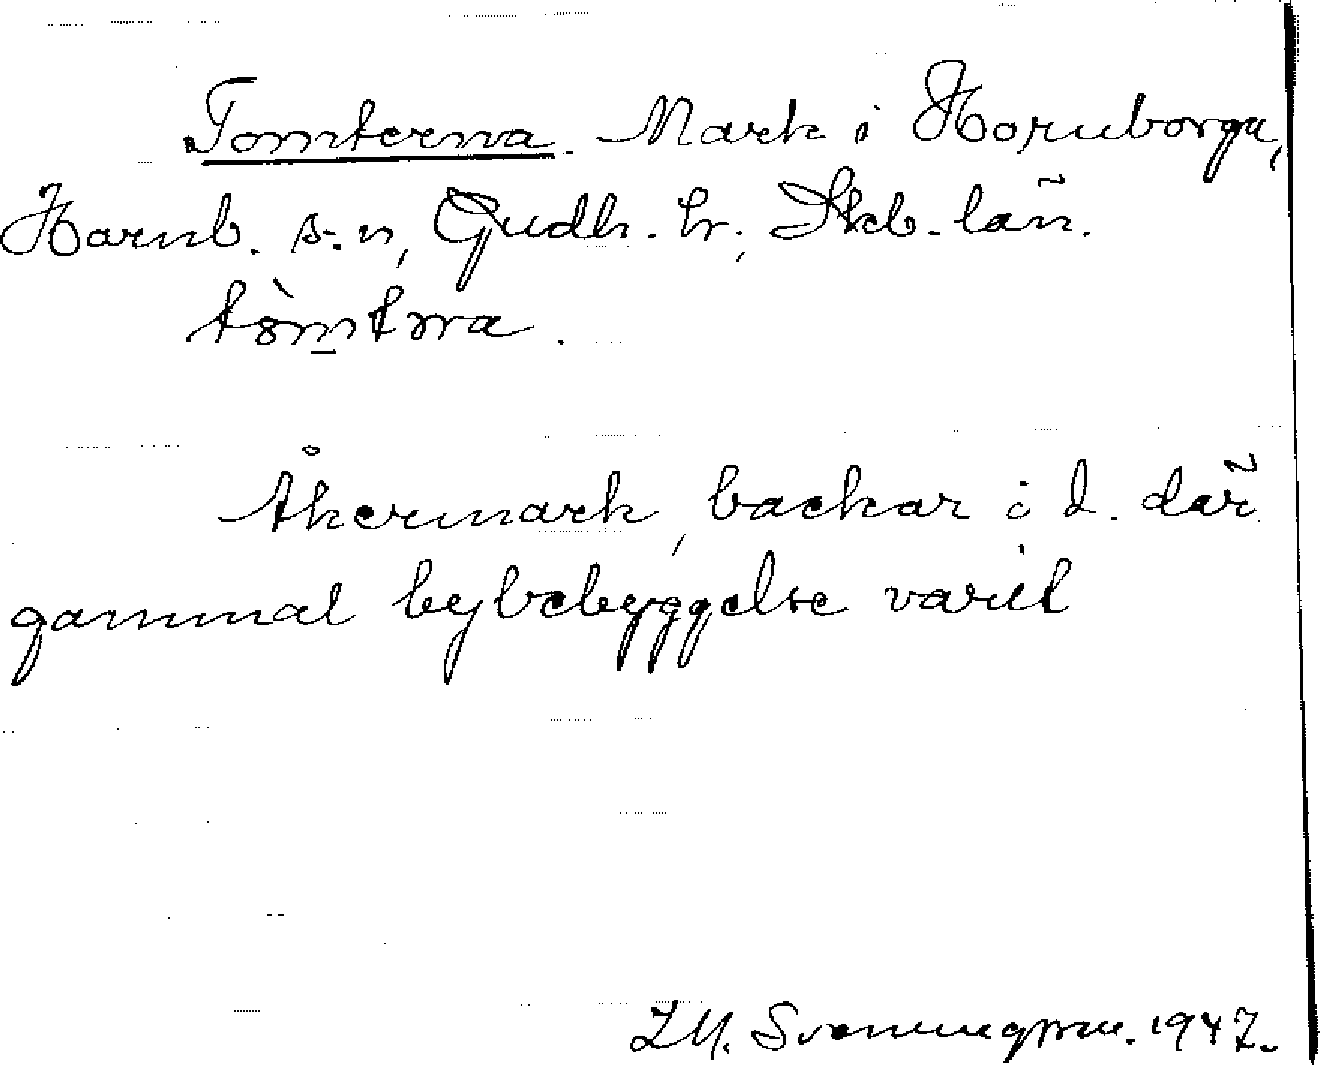 Tomterna. Mark i Hornborga,
Hornb. s-n, Gudh. hr, Skb. län.
tòmtṇa.
Åkermark, backar i d. där
gammal bybebyggelse varit
Z.M. Svenningsson. 1947.